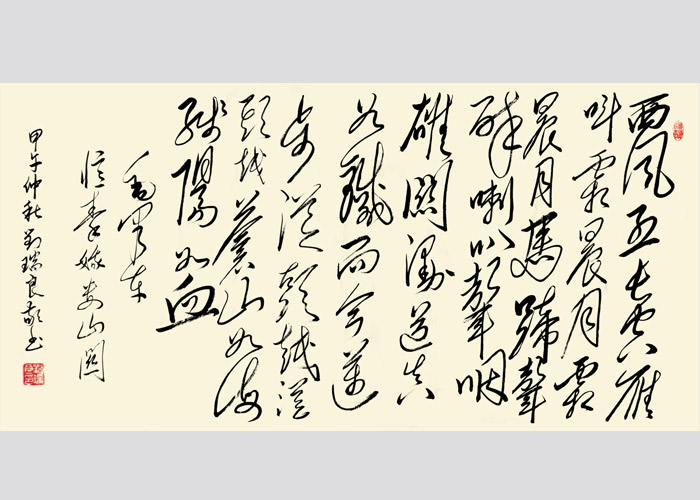 西風烈長空雁
叫霜晨月霜
晨月馬蹄聲
碎喇叭聲咽
雄關漫道真
如鐵而今邁
步從頭越從
頭越蒼山如海
殘陽如血
毛澤東
憶秦娥婁山關
甲午仲秋劉瑞良敬书